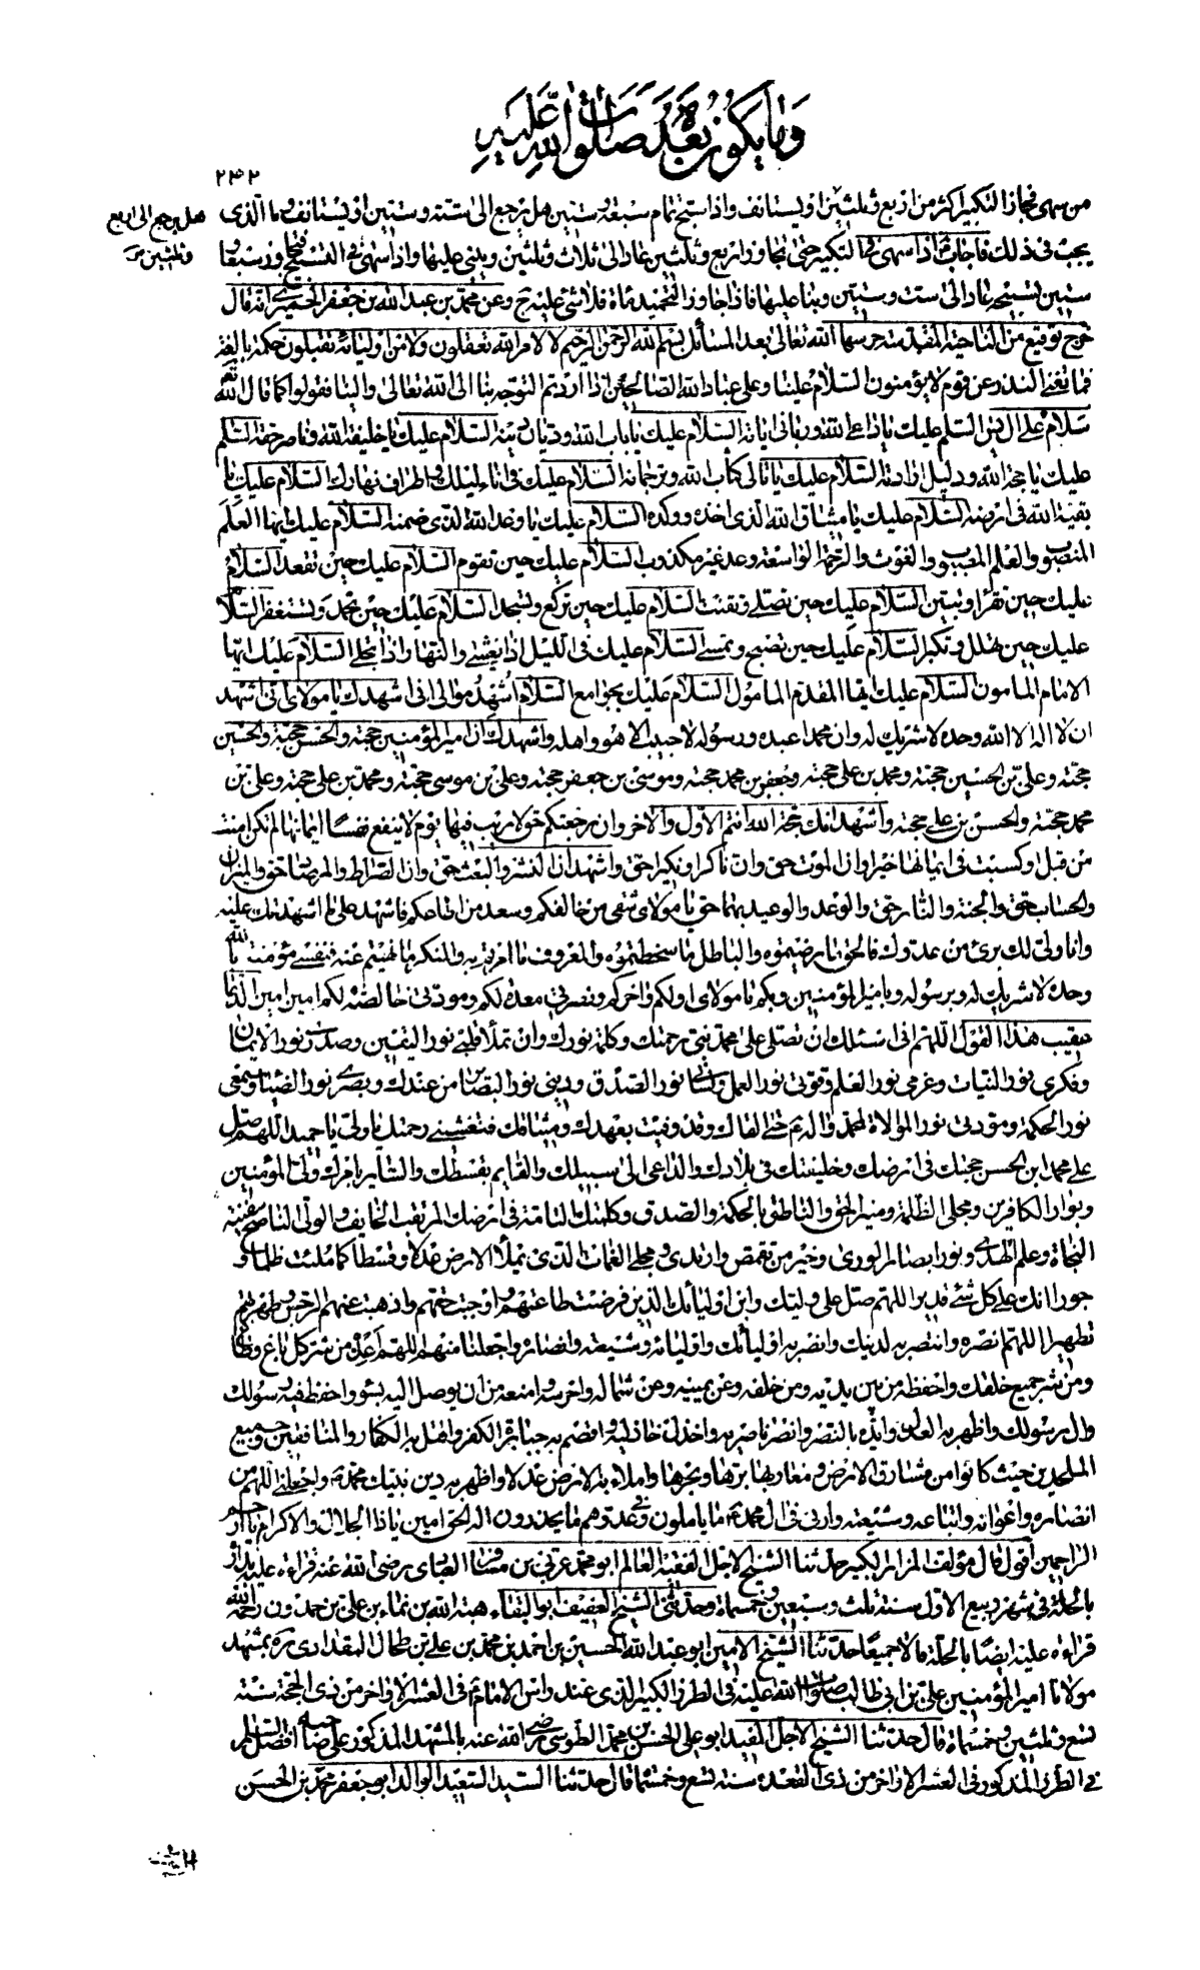 وما يكون بعده صلوات الله عليه
٢۴٢
من سهى فجاز التكبير اكثر من اربع وثلثين او يستانف واذا سبح تمام سبعة وستين هل يرجع الى ستة وستين او يستانف وما الذى
هل يرجع الى اربع
وثلثين
يجب فى ذلك فاجاب اذا سهى فى التكبير حتى تجاوز اربع وثلثين عاد الى ثلاث وثلثين ويبنى عليها واذا سهى فى التسبيح فتجاوز سبعا و
ستين تسبيحة عاد الى ست وستين وبنا عليها فاذا جاوز التحميد مأة فلا شئ عليه وعن محمد بن عبد الله بن جعفر الحميرى انه قال
خرج توقيع من الناحية المقدسة حرسها الله تعالى بعد المسائل بسم الله الرحمن الرحيم لا لامر الله تعقلون ولا من اوليائه تقبلون حكمة بالغة
فما تغنى النذر عن قوم لا يؤمنون السلام علينا وعلى عباد الله الصالحين اذا اردتم التوجه بنا الى الله تعالى والينا فقولوا كما قال الله
سلام على ال يس السلم عليك يا داعى الله وربانى اياته السلام عليك يا باب الله وديان دينه السلام عليك يا خليفة الله وناصر حقه السلم
عليك يا حجة الله ودليل ارادته السلام عليك يا تالى كتاب الله وترجمانه السلام عليك فى اناء ليلك واطراف نهارك السلام عليك يا
بقية الله فى ارضه السلام عليك يا ميثاق الله الذى اخذه ووكده السلام عليك يا وعد الله الذى ضمنه السلام عليك ايها العلم
المنصوب والعلم المصبوب والغوث والرحمة الواسعة وعد غير مكذوب السلام عليك حين تقوم السلام عليك حين تقعد السلام
عليك حين تقرأ وتبين السلام عليك حين تصلى وتقنت السلام عليك حين تركع وتسجد السلام عليك حين تحمد وتستغفر السلا
عليك حين تهلل وتكبر السلام عليك حين تصبح وتمسى السلام عليك فى الليل اذا يغشى والنهار اذا تجلى السلام عليك ايها
الامام المامون السلام عليك ايها المقدم المامول السلام عليك بجوامع السلام اشهد موالى انى اشهدك يا مولاى انى اشهد
ان لا اله الا الله وحده لا شريك له وان محمدا عبده ورسوله لا حبيب الا هو واهله واشهدك ان امير المؤمنين حجته والحسن حجته والحسين
حجته وعلى بن الحسين حجته ومحمد بن على حجته وجعفر بن محمد حجته وموسى بن جعفر حجته وعلى بن موسى حجته ومحمد بن على حجته وعلى بن
محمد حجته والحسن بن على حجته واشهد انك حجة الله انتم الاول والاخر وان رجعتكم حق لا ريب فيها يوم لا ينفع نفسا ايمانها لم تكن امنت
من قبل وكسبت فى ايمانها خيرا وان الموت حق وان ناكرا ونكيرا حق واشهد ان النشر والبعث حق وان الصراط والمرصاد حق والميزان
والحساب حق والجنة والنار حق والوعد والوعيد بهما حق يا مولاى شقى من خالفكم وسعد من اطاعكم فاشهد على ما اشهدتك عليه
وانا ولى لك برئ من عدوك فالحق ما رضيتموه والباطل ما سخطتموه والمعروف ما امرتم به والمنكر ما نهيتم عنه فنفسى مؤمنة بالله
وحده لا شريك له وبرسوله وبامير المؤمنين وبكم يا مولاى اولكم واخركم ونصرتى معدة لكم ومودتى خالصة لكم امين امين الدعا
عقيب هذا القول اللهم انى اسئلك ان تصلى على محمد نبى رحمتك وكلمة نورك وان تملأ قلبى نور اليقين وصدرى نور الايمان
وفكرى نور النيات وعزمى نور العلم وقوتى نور العمل ولسانى نور الصدق ودينى نور البصائر من عندك وبصرى نور الضياء وسمعى
نور الحكمة ومودتى نور الموالاة لمحمد واله ع حتى القاك وقد وفيت بعهدك وميثاقك فتغشينى رحمتك يا ولى يا حميد اللهم صل
على محمد ابن الحسن حجتك فى ارضك وخليفتك فى بلادك والداعى الى سبيلك والقايم بقسطك والثاير بامرك ولى المؤمنين
وبوار الكافرين ومجلى الظلمة ومنير الحق والناطق بالحكمة والصدق وكلمتك التامة فى ارضك المرتقب الخايف والولى الناصح سفينة
النجاة وعلم الهدى ونور ابصار الورى وخير من تقمص وارتدى ومجلى الغمات الذى يملأ الارض عدلا وقسطا كما ملئت ظلما و
جورا انك على كل شئ قدير اللهم صل على وليك وابن اوليائك الذين فرضت طاعتهم واوجبت حقهم واذهبت عنهم الرجس وطهرتهم
تطهيرا اللهم نصره وانتصر به لدينك وانصر به اوليائك واوليائه وشيعته وانصاره واجعلنا منهم اللهم اعذه من شر كل باغ وطاغ
ومن شر جميع خلقك واحفظه من بين يديه ومن خلفه وعن يمينه وعن شماله واحرسه وامنعه من ان يوصل اليه بسوء واحفظ فيه رسولك
وال رسولك واظهر به العدل وايده بالنصر وانصر ناصريه واخذل خاذليه واقصم به جبابرة الكفر واقتل به الكفار والمنافقين وجميع
الملحدين حيث كانوا من مشارق الارض ومغاربها برها وبحرها واملاء به الارض عدلا واظهر به دين نبيك محمد ص واجعلنى اللهم من
انصاره واعوانه واتباعه وشيعته وارنى فى ال محمد ع ما ياملون وفى عدوهم ما يحذرون اله الحق امين يا ذا الجلال والاكرام يا ارحم
الراحمين اقول قال مؤلف المزار الكبير حدثنا الشيخ الاجل الفقيه العالم ابو محمد عربى بن مسافر العبادى رضى الله عنه قراءة عليه بداره
بالحلة فى شهر ربيع الاول سنة ثلث وسبعين وخمسمأة وحدثنى الشيخ العفيف ابو البقاء هبة الله بن نماء بن على بن حمدون رحمه الله
قراءة عليه ايضا بالحلة قالا جميعا حدثنا الشيخ الامين ابو عبد الله الحسين بن احمد بن محمد بن على بن طحال المقدادى ره بمشهد
مولانا امير المؤمنين على بن ابى طالب صلوات الله عليه فى الطرز الكبير الذى عند راس الامام ع فى العشر الاواخر من ذى الحجة سنة
تسع وثلثين وخمسمأة قال حدثنا الشيخ الاجل المفيد ابو على الحسن بن محمد الطوسى رضى الله عنه بالمشهد المذكور على صاحبه افضل السلم
فى الطرز المذكور فى العشر الاواخر من ذى القعدة سنة تسع وخمسمأة قال حدثنا السيد السعيد الوالد ابو جعفر محمد بن الحسن